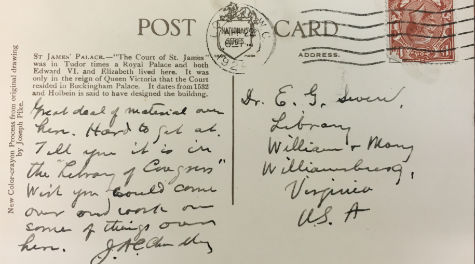 POST CARD
ADDRESS.
ST JAMES' PALACE.—"The Court of St. James"
was in Tudor times a Royal Palace and both
Edward VI. and Elizabeth lived here. It was
only in the reign of Queen Victoria that the Court
resided in Buckingham Palace. It dates from 1532
and Holbein is said to have designed the building.
New Color-crayon Process from original drawing
by Joseph Pike.
Great deal of material over
here. Hard to get at.
Tell you it is in
the "Library of Congress"
Wish you could come
over and work on
some of things over
here. J.A.C. Chandler
Dr. E. G. Swem,
Library
William & Mary
Williamsburg,
Virginia
U.S.A